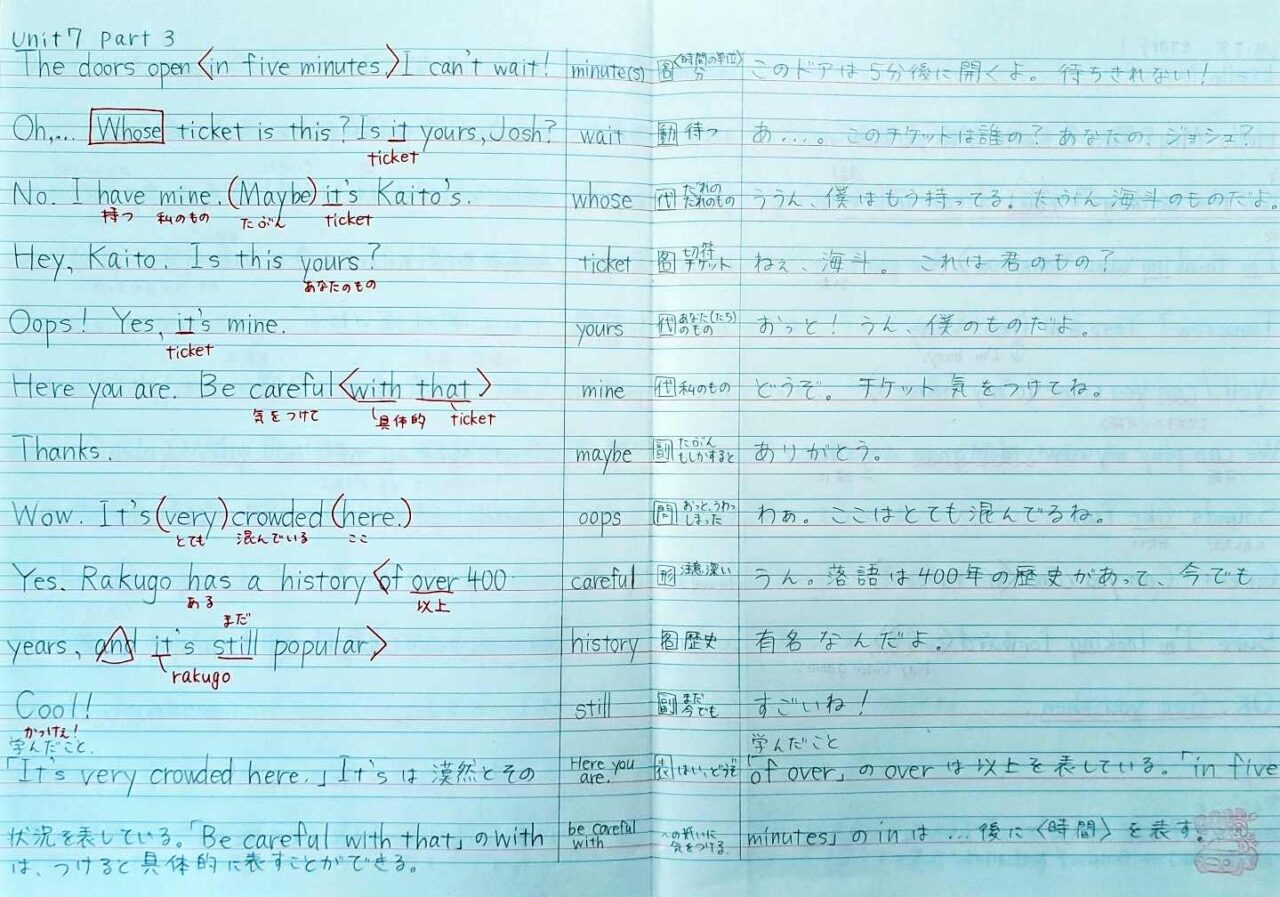 Unit 7 Part 3
The doors open〈in five minutes〉I can't wait!
minute(s) 名〈時間の単位〉分
このドアは5分後に開くよ。待ちきれない!
Oh,... Whose ticket is this? Is it yours, Josh?
ticket
wait 動 待つ
あ...。このチケットは誰の?あなたの、ジョシュ?
No. I have mine. (Maybe) it's Kaito's.
持つ 私のもの たぶん ticket
whose 代 だれの だれのもの
ううん、僕はもう持ってる。たぶん海斗のものだよ。
Hey, Kaito. Is this yours?
あなたのもの
ticket 名 切符 チケット
ねぇ、海斗。これは君のもの?
Oops! Yes, it's mine.
ticket
yours 代 あなた(たち)のもの
おっと!うん、僕のものだよ。
Here you are. Be careful〈with that〉
気をつけて 具体的 ticket
mine 代 私のもの
どうぞ。チケット気をつけてね。
Thanks.
maybe 副 たぶん もしかすると
ありがとう。
Wow. It's (very) crowded (here.)
とても 混んでいる ここ
oops 間 おっと、うわっ しまった
わぁ。ここはとても混んでるね。
Yes. Rakugo has a history〈of over 400
ある 以上
careful 形 注意深い
うん。落語は400年の歴史があって、今でも
まだ
years, and it's still popular〉
rakugo
history 名 歴史
有名なんだよ。
Cool!
かっけぇ!
still 副 まだ 今でも
すごいね!
学んだこと.
「It's very crowded here.」It's は 漠然とその
Here you are. 表 はい、どうぞ
学んだこと
「of over」の over は以上を表している。「in five
状況を表している。「Be careful with that」のwith
は、つけると具体的に表すことができる。
be careful with ~の扱いに気をつける.
minutes」の in は …後に〈時間〉を表す。